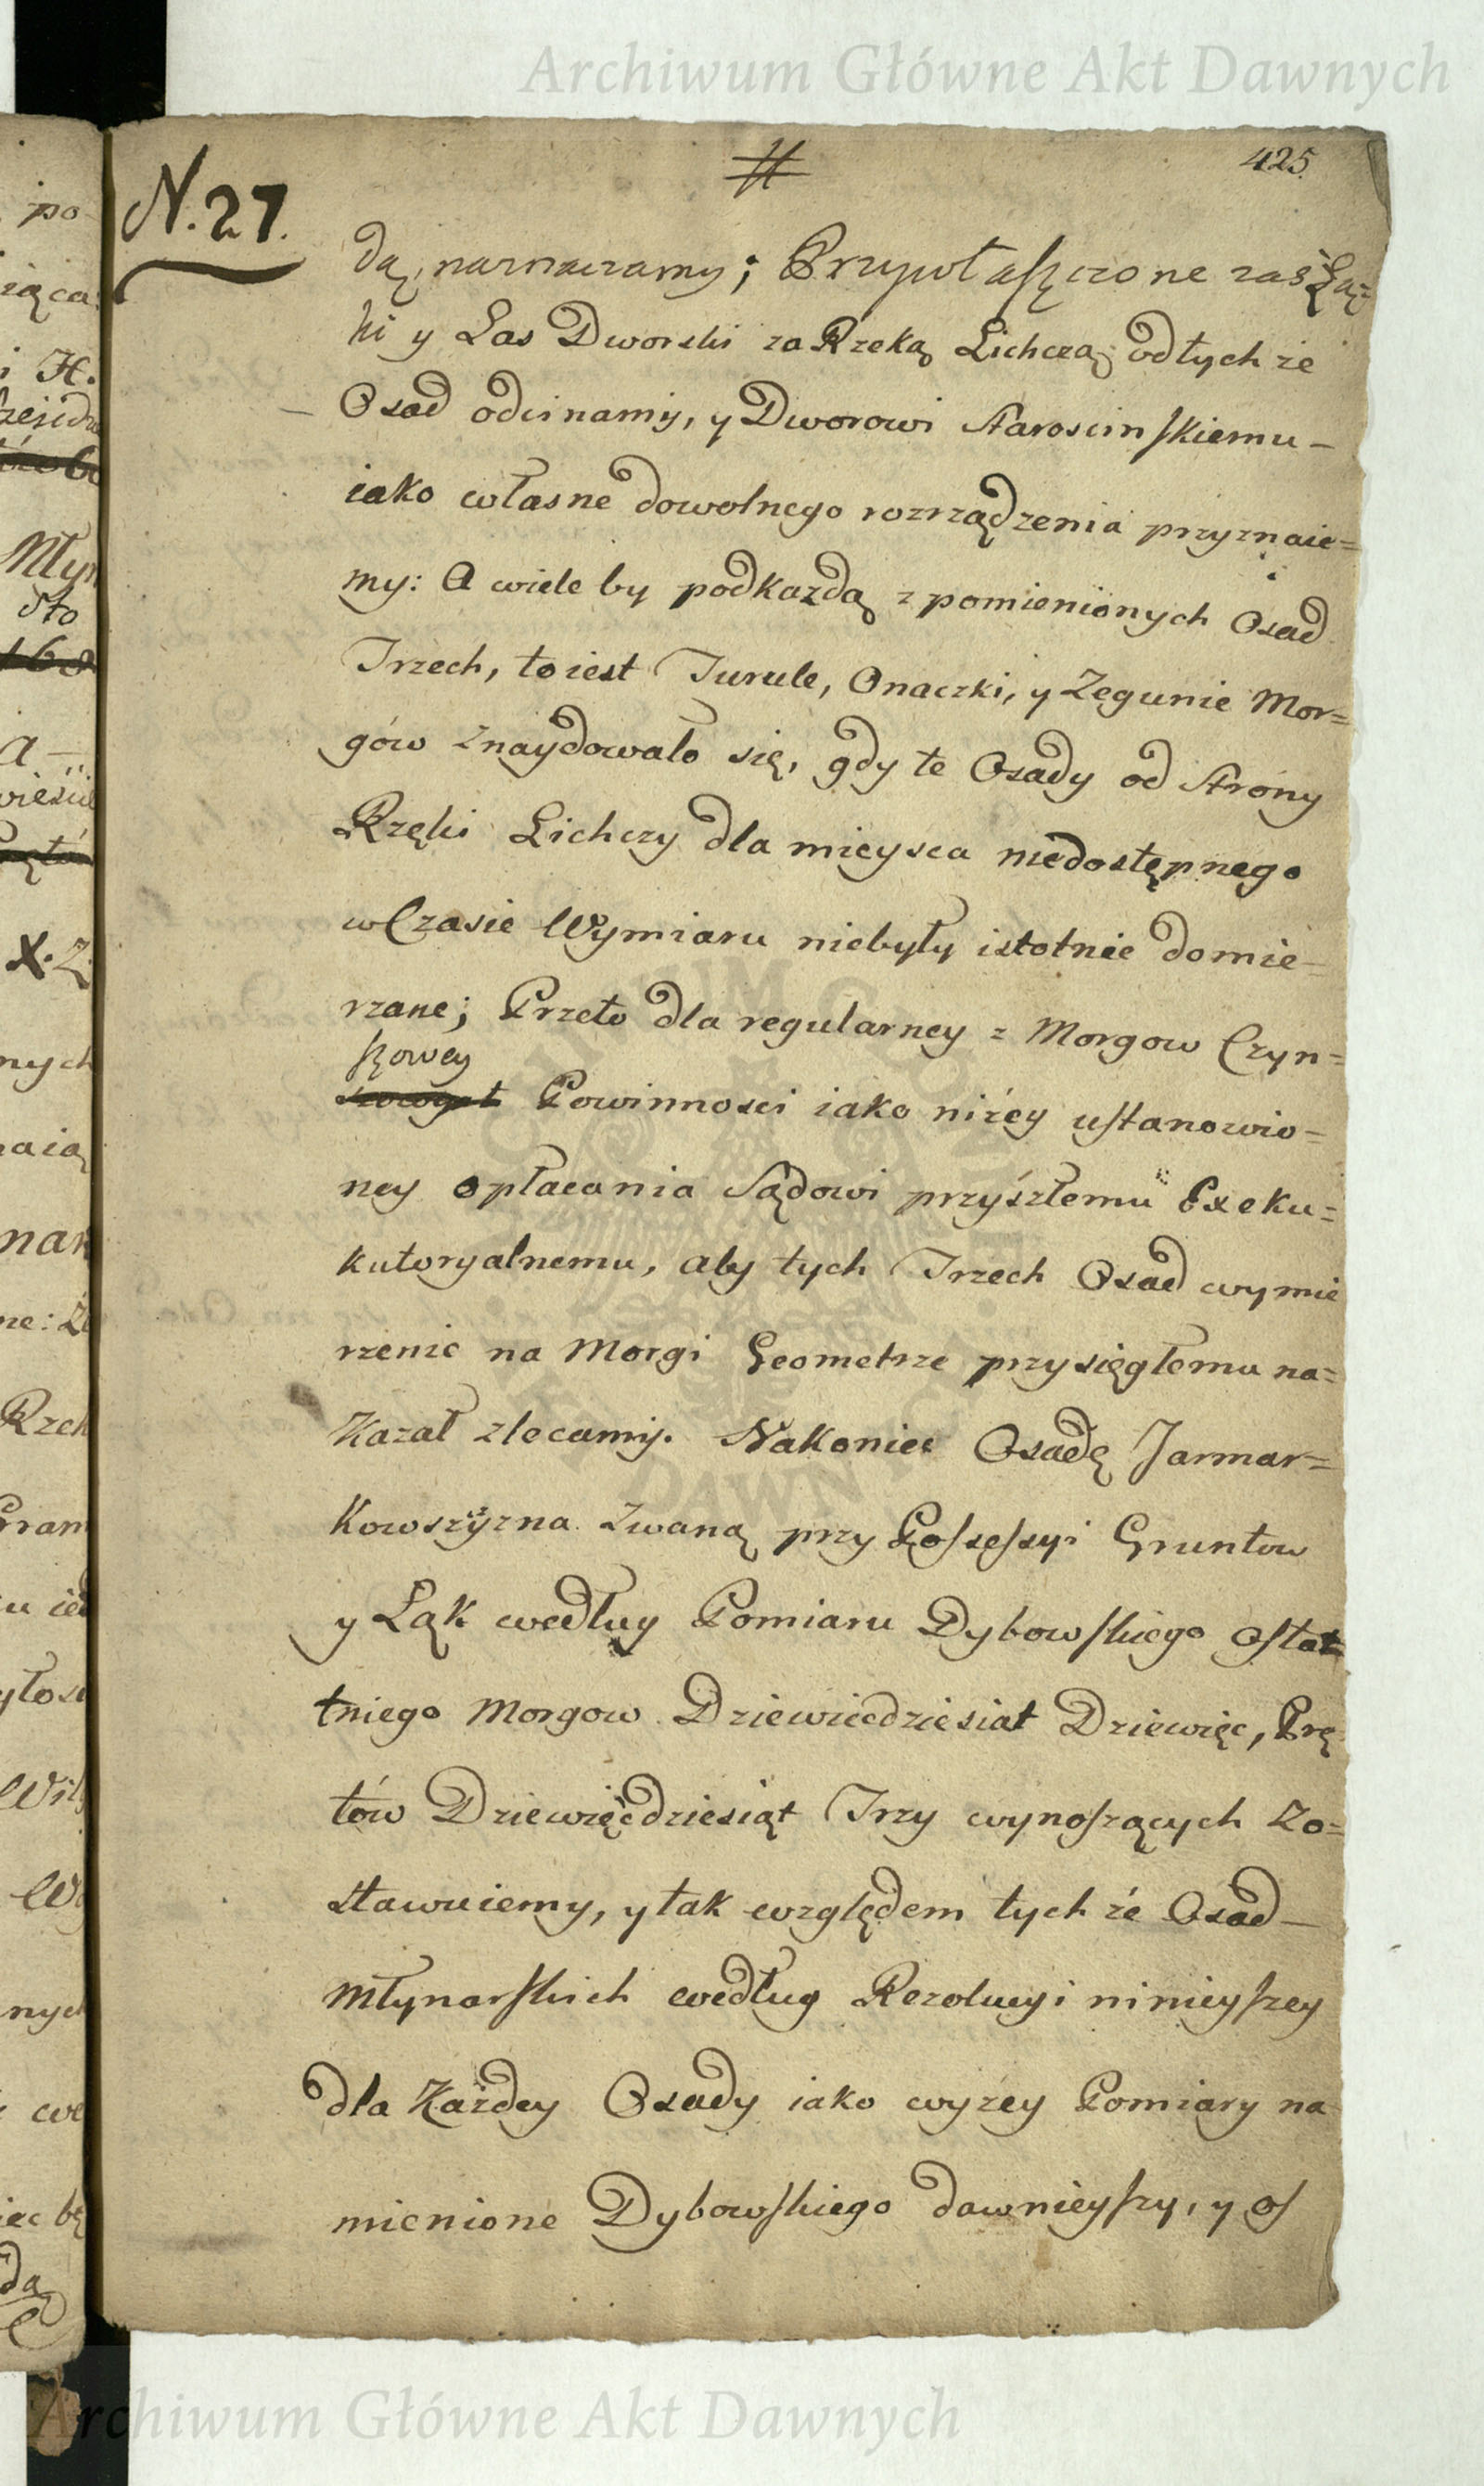 Archiwum Główne Akt Dawnych
425.
N. 27.
dą, naznaczamy; Przywłaszczone zaś Łą=
ki y Las Dworski za Rzeką Lichczą od tych że
Osad odcinamy, y Dworowi Starościnskiemu –
iako własne dowolnego rozrządzenia przyznaie=
my: A wiele by pod każdą z pomienionych Osad
Trzech, to iest Turule, Onaczki, y Zegunie Mor=
gów znaydowało się, gdy te Osady od Strony
Rzęki Lichczy dla mieysca niedostępnego
w Czasie Wymiaru niebyły istotnie domie=
rzane; Przeto dla regularney z Morgow Czyn=
szowey
Powinnosci iako niżey ustanowio=
ney opłacania Sądowi przyszłemu Exeku=
kutoryalnemu, aby tych Trzech Osad wymie
rzenie na Morgi Geometrze przysięgłemu na=
kazał zlecamy. Nakoniec Osadę Jarmar=
kowszczyzna zwaną przy Possessyi Gruntow
y Łąk według Pomiaru Dybowskiego ostat=
tniego Morgow Dziewiedziesiat Dziewięc, Prę
tów Dziewięcdziesiąt Trzy wynoszących Zo=
stawuiemy, y tak względem tych że Osad –
Młynarskich według Rezolucyi ninieyszey
dla każdey Osady iako wyzey Pomiary na
mienione Dybowskiego dawnieyszy, y os
Archiwum Główne Akt Dawnych